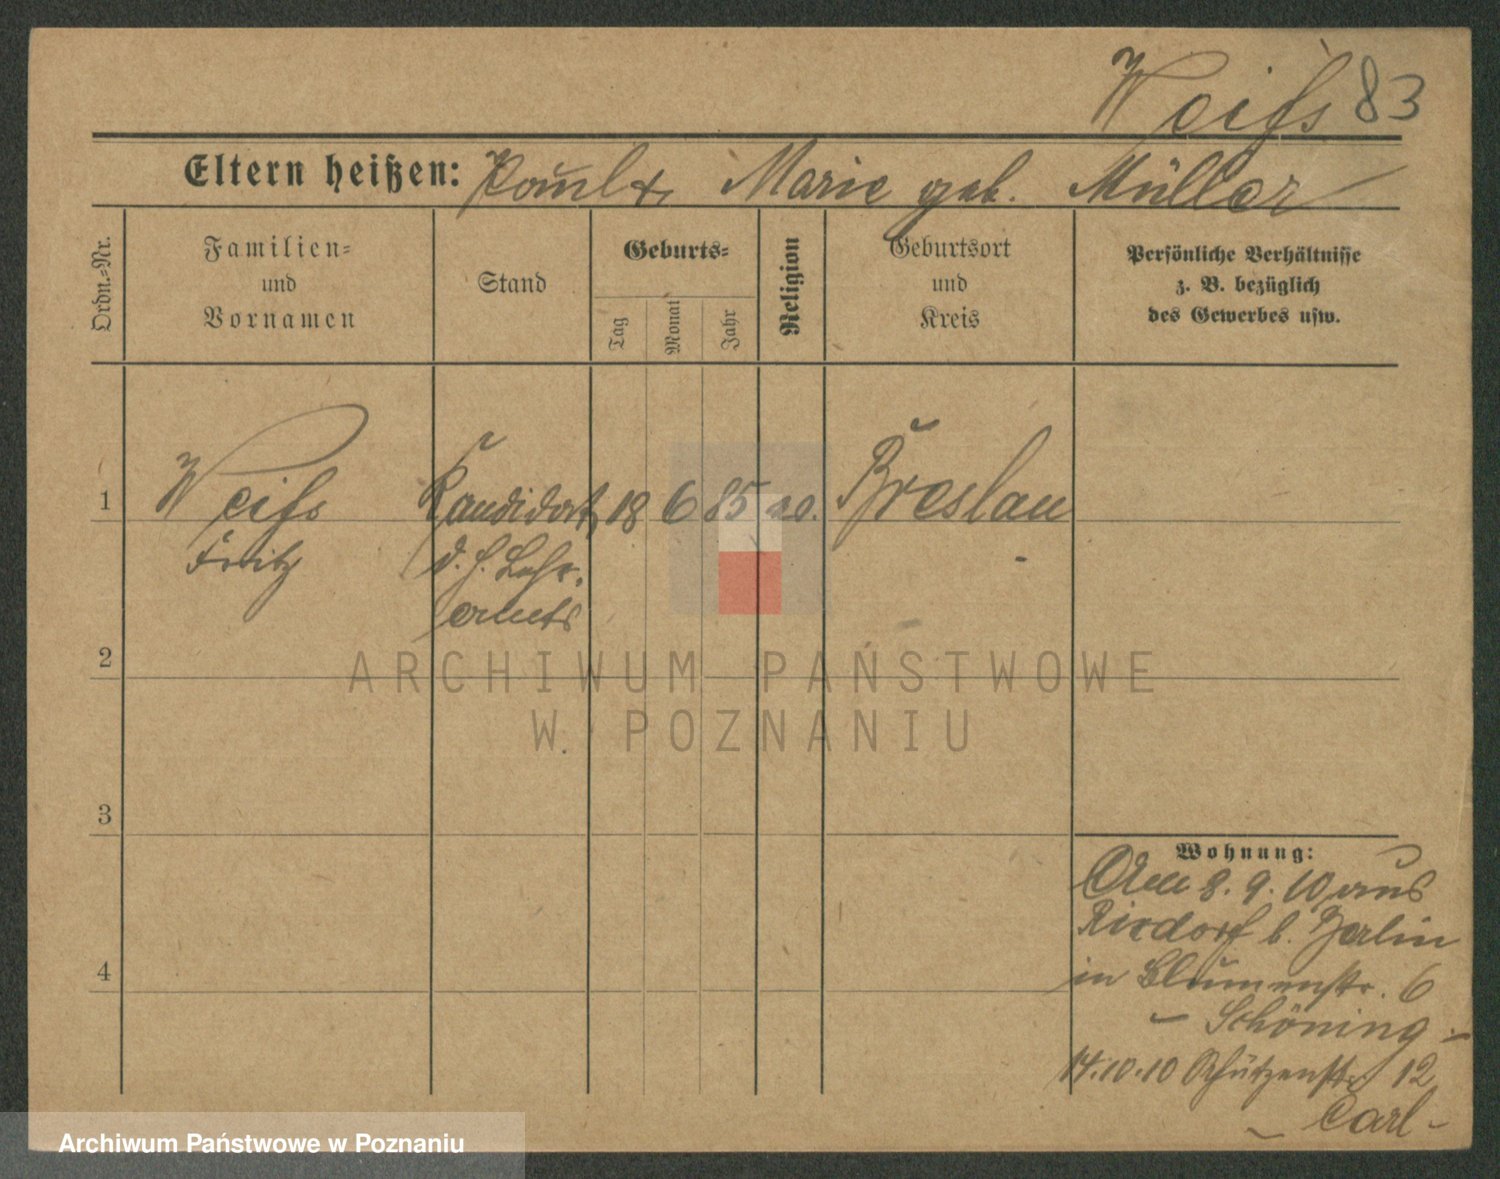 Weiß 83
Eltern heißen: Paul & Marie geb. Müller
Ordn.-Nr.
Familien-
und
Vornamen
Stand
Geburts-
Tag
Monat
Jahr
Religion
Geburtsort
und
Kreis
Persönliche Verhältnisse
z. B. bezüglich
des Gewerbes usw.
1 Weiß Kandidat 18 6 85 Breslau
Fritz d. h. Lehr-
amts
2
3
4
Wohnung:
Am 8. 9. 10 aus
Rixdorf b. Berlin
in Blumenstr. 6
- Schöning -
14.10.10 Schützenstr 12
- Carl -
ARCHIWUM PAŃSTWOWE
W POZNANIU
Archiwum Państwowe w Poznaniu